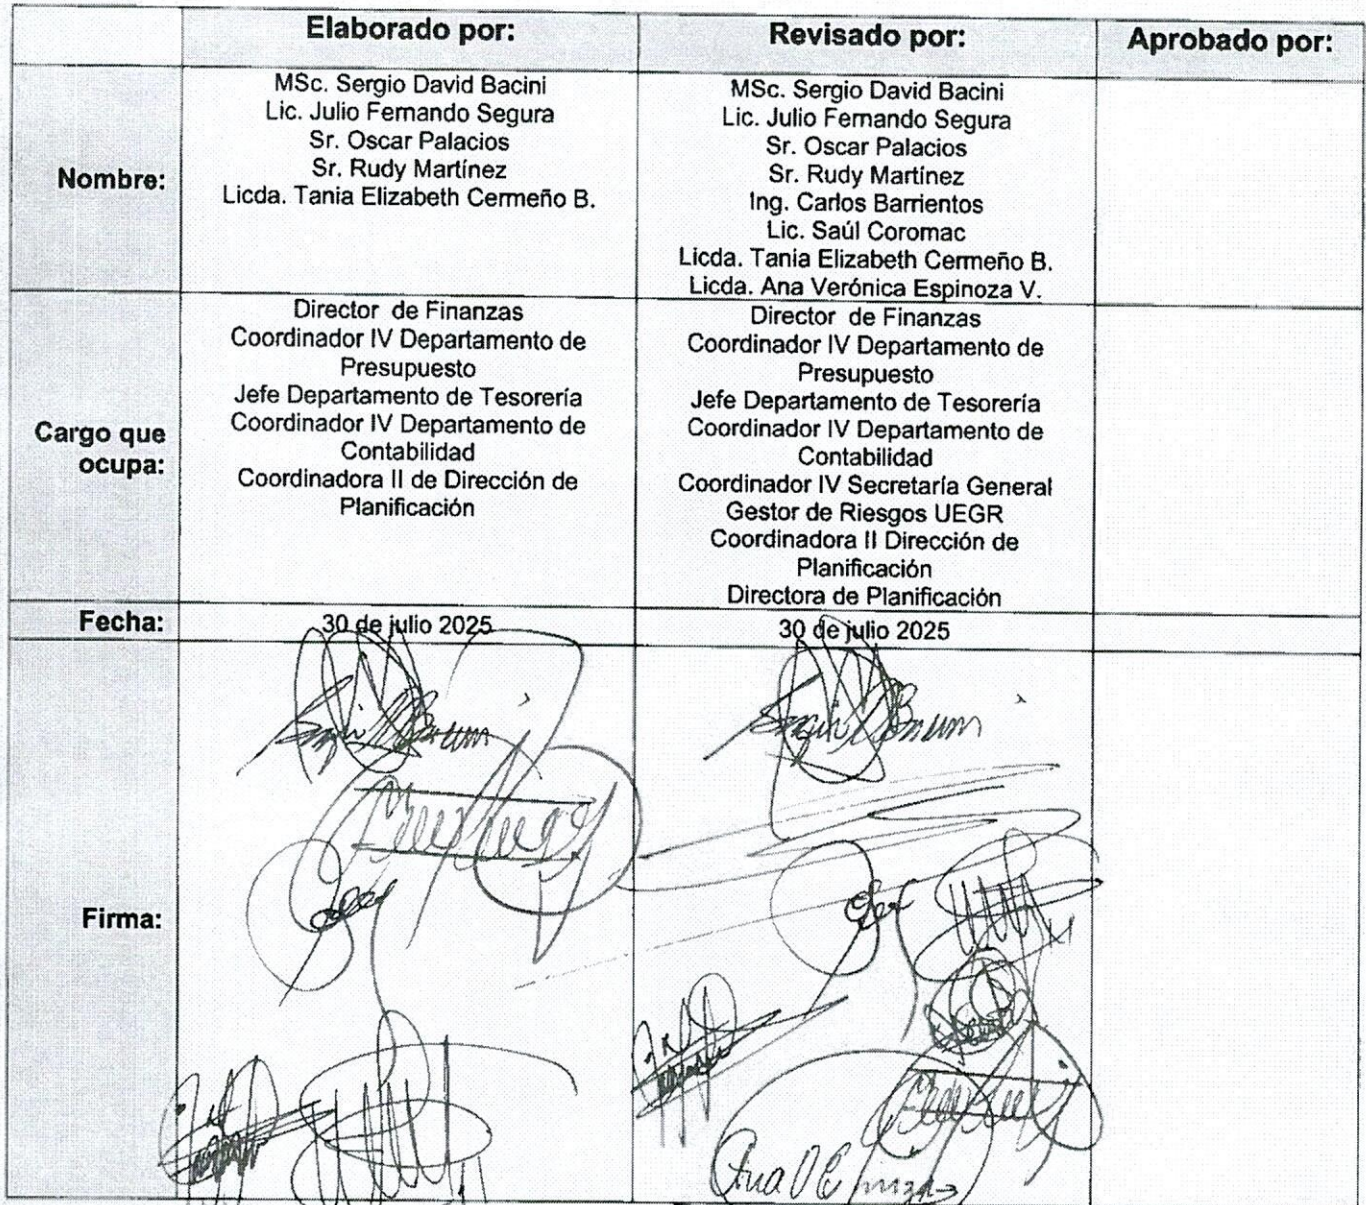 Elaborado por:
Revisado por:
Aprobado por:
Nombre:
MSc. Sergio David Bacini
Lic. Julio Fernando Segura
Sr. Oscar Palacios
Sr. Rudy Martínez
Licda. Tania Elizabeth Cermeño B.
MSc. Sergio David Bacini
Lic. Julio Fernando Segura
Sr. Oscar Palacios
Sr. Rudy Martínez
Ing. Carlos Barrientos
Lic. Saúl Coromac
Licda. Tania Elizabeth Cermeño B.
Licda. Ana Verónica Espinoza V.
Cargo que
ocupa:
Director de Finanzas
Coordinador IV Departamento de
Presupuesto
Jefe Departamento de Tesorería
Coordinador IV Departamento de
Contabilidad
Coordinadora II de Dirección de
Planificación
Director de Finanzas
Coordinador IV Departamento de
Presupuesto
Jefe Departamento de Tesorería
Coordinador IV Departamento de
Contabilidad
Coordinador IV Secretaría General
Gestor de Riesgos UEGR
Coordinadora II Dirección de
Planificación
Directora de Planificación
Fecha:
30 de julio 2025
30 de julio 2025
Firma: